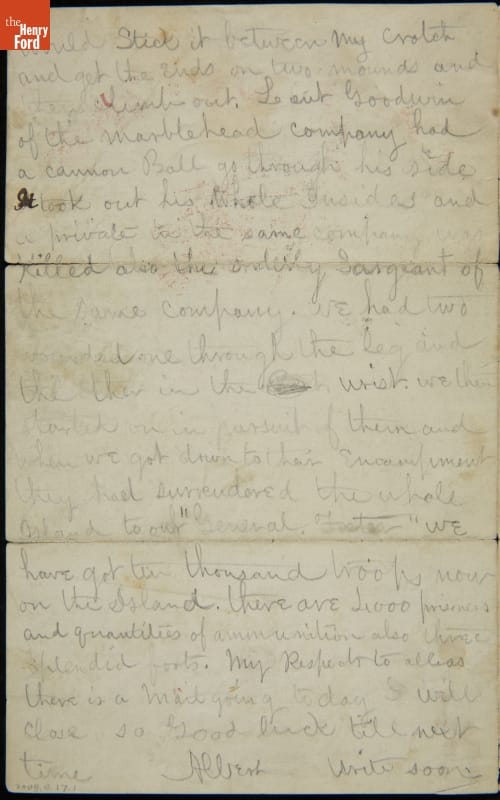 the
Henry
Ford
would Stick it between my crotch
and get the ends on two mounds and
climb out. Leout Goodwin
of the marblehead company had
a cannon Ball go through his side
It took out his whole Insides and
a private in the same company was
killed also the orderly Sargeant of
the same company. we had two
wounded one through the leg and
the ther in the wrist. we then
started on in pursuit of them and
when we got down to their Encampment
they had surrendered the whole
Island to our "General. Foster" we
have got ten thousand troops now
on the Island. there are 2,000 prisoners
and quantities of ammunition also three
splendid forts. My Respects to all as
there is a Mail going today I will
close so Good luck till next
time Albert Write soon.